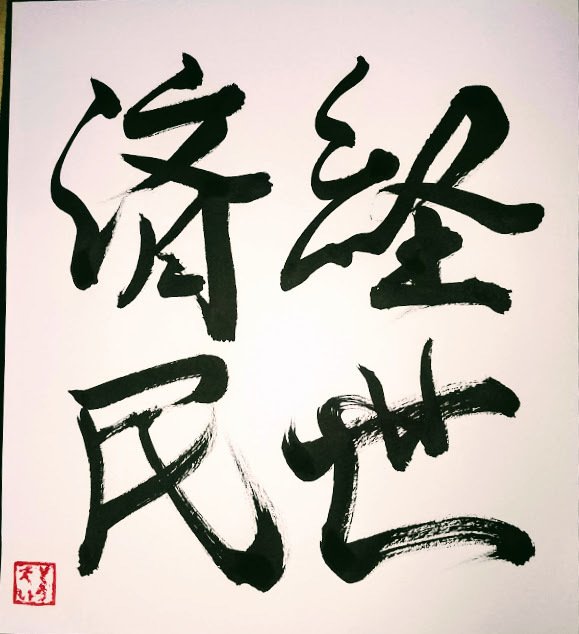 経世
済民